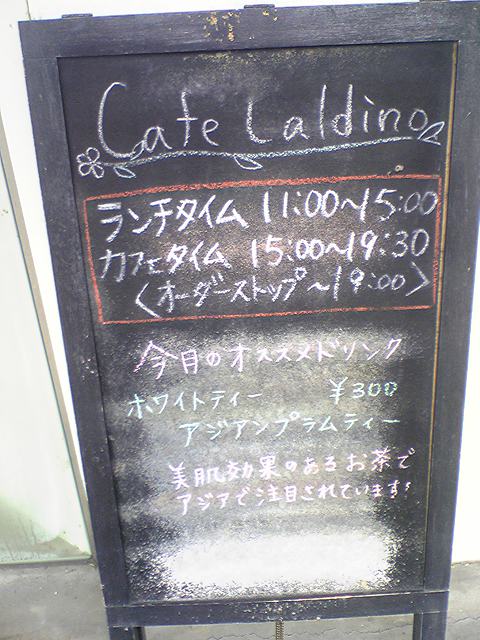 Cafe Caldino
ランチタイム 11:00〜15:00
カフェタイム 15:00〜19:30
〈オーダーストップ〜19:00〉
今月のオススメドリンク
ホワイトティー ¥300
アジアンプラムティー
美肌効果のあるお茶で
アジアで注目されています!